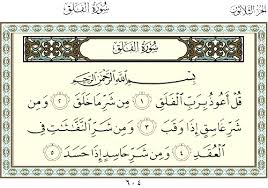 سُورَةُ الْفَلَقِ
الجزء الثلاثون
سُورَةُ الْفَلَقِ
بِسْمِ اللَّهِ الرَّحْمَٰنِ الرَّحِيمِ
قُلْ أَعُوذُ بِرَبِّ الْفَلَقِ ١ مِن شَرِّ مَا خَلَقَ ٢ وَمِن
شَرِّ غَاسِقٍ إِذَا وَقَبَ ٣ وَمِن شَرِّ النَّفَّٰثَٰتِ فِي
الْعُقَدِ ٤ وَمِن شَرِّ حَاسِدٍ إِذَا حَسَدَ ٥
٦٠٤